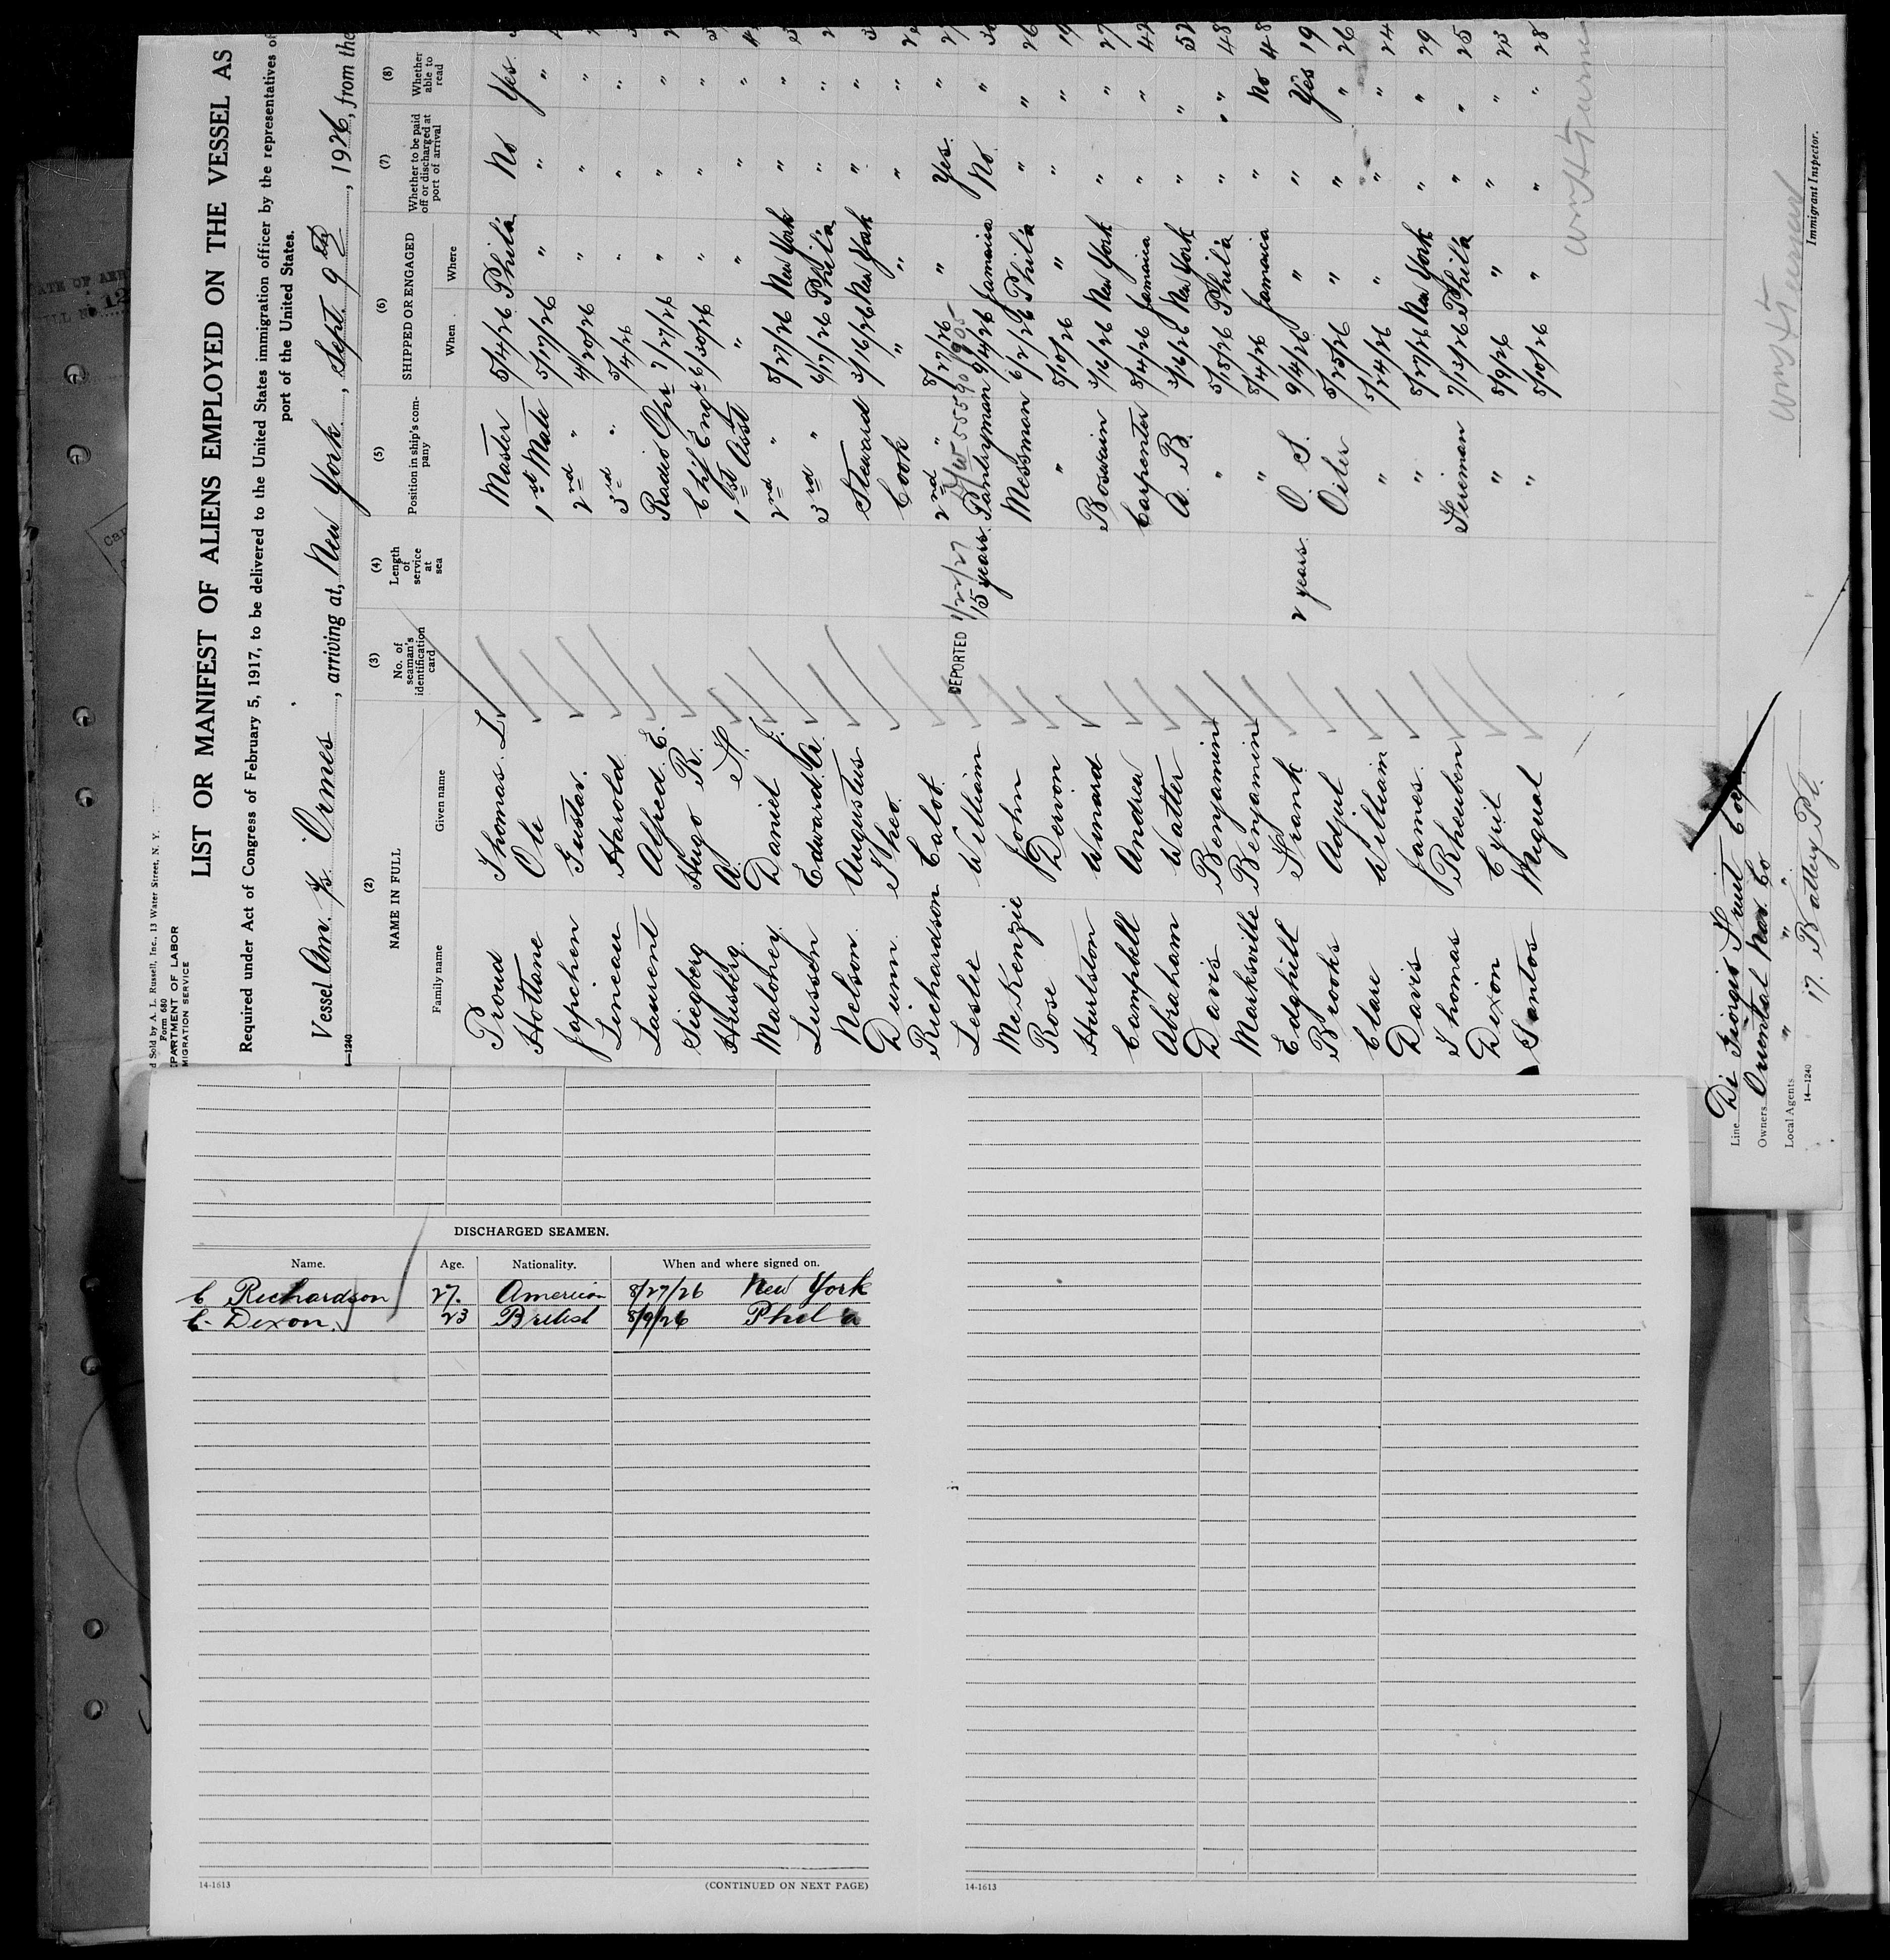 d Sold by A. L. Russell, Inc., 13 Water Street, N. Y.
Form 680
PARTMENT OF LABOR
MIGRATION SERVICE
LIST OR MANIFEST OF ALIENS EMPLOYED ON THE VESSEL AS
Required under Act of Congress of February 5, 1917, to be delivered to the United States immigration officer by the representatives of
port of the United States.
Vessel Am. Ormes, arriving at, New York, Sept. 9th, 1926, from the
1240
(2) NAME IN FULL (3) No. of seaman's identification card (4) Length of service at sea (5) Position in ship's company (6) SHIPPED OR ENGAGED (7) Whether to be paid off or discharged at port of arrival (8) Whether able to read
Family name Given name When Where
Proud Thomas L Master 5/4/26 Phil'a No Yes
Hottane Ole 1st Mate 5/17/26 " " "
Japchen Gustav. 2nd " 4/20/26 " " "
Leneau Harold 3rd " 5/4/26 " " "
Laurent Alfred E. Radio Opr 7/27/26 " " "
Siegberg Hugo R. Chf Eng. 6/30/26 " " "
Heisberg A. H. 1st Asst " " " "
Maloney Daniel J. 2nd " 8/27/26 New York " "
Lussen Edward A. 3rd " 6/17/26 Phil'a " "
Nelson Augustus Steward 3/16/26 New York " "
Dunn Theo. Cook " " " "
Richardson Calob 2nd " 8/27/26 " Yes "
DEPORTED 1/22/27
Leslie William 15 years Pantryman 9/4/26 Jamaica No "
McKenzie John Messman 6/2/26 Phil'a " "
Rose Dervon " 8/10/26 " " "
Hurlston Winard Boswain 3/6/26 New York " "
Campbell Andrew Carpenter 8/4/26 Jamaica " "
Abraham Walter A. B. 3/16/26 New York " "
Davis Benyamin " 5/8/26 Phil'a " "
Marksville Benyamin " 8/4/26 Jamaica " No 48
Edghill Frank 2 years O. S. 9/4/26 " " Yes 19
Brooks Adjul Oiler 5/25/26 " " " 26
Clare William " 5/24/26 " " " 24
Davis James. " 8/27/26 New York " " 29
Thomas Rheuben Fireman 7/13/26 Phil'a " " 25
Dixon Cyril " 8/9/26 " " " 23
Santos Migual " 8/10/26 " " " 28
Line Di Giorgio Fruit Cop.
Owners Oriental Nav. Co
Local Agents " " "
17. Battery Pl.
14—1240
Immigrant Inspector.
DISCHARGED SEAMEN.
Name. Age. Nationality. When and where signed on.
C Richardson 27. American 8/27/26 New York
C. Dixon. 23 British 8/9/26 Phil'a
14-1613
(CONTINUED ON NEXT PAGE)
14-1613